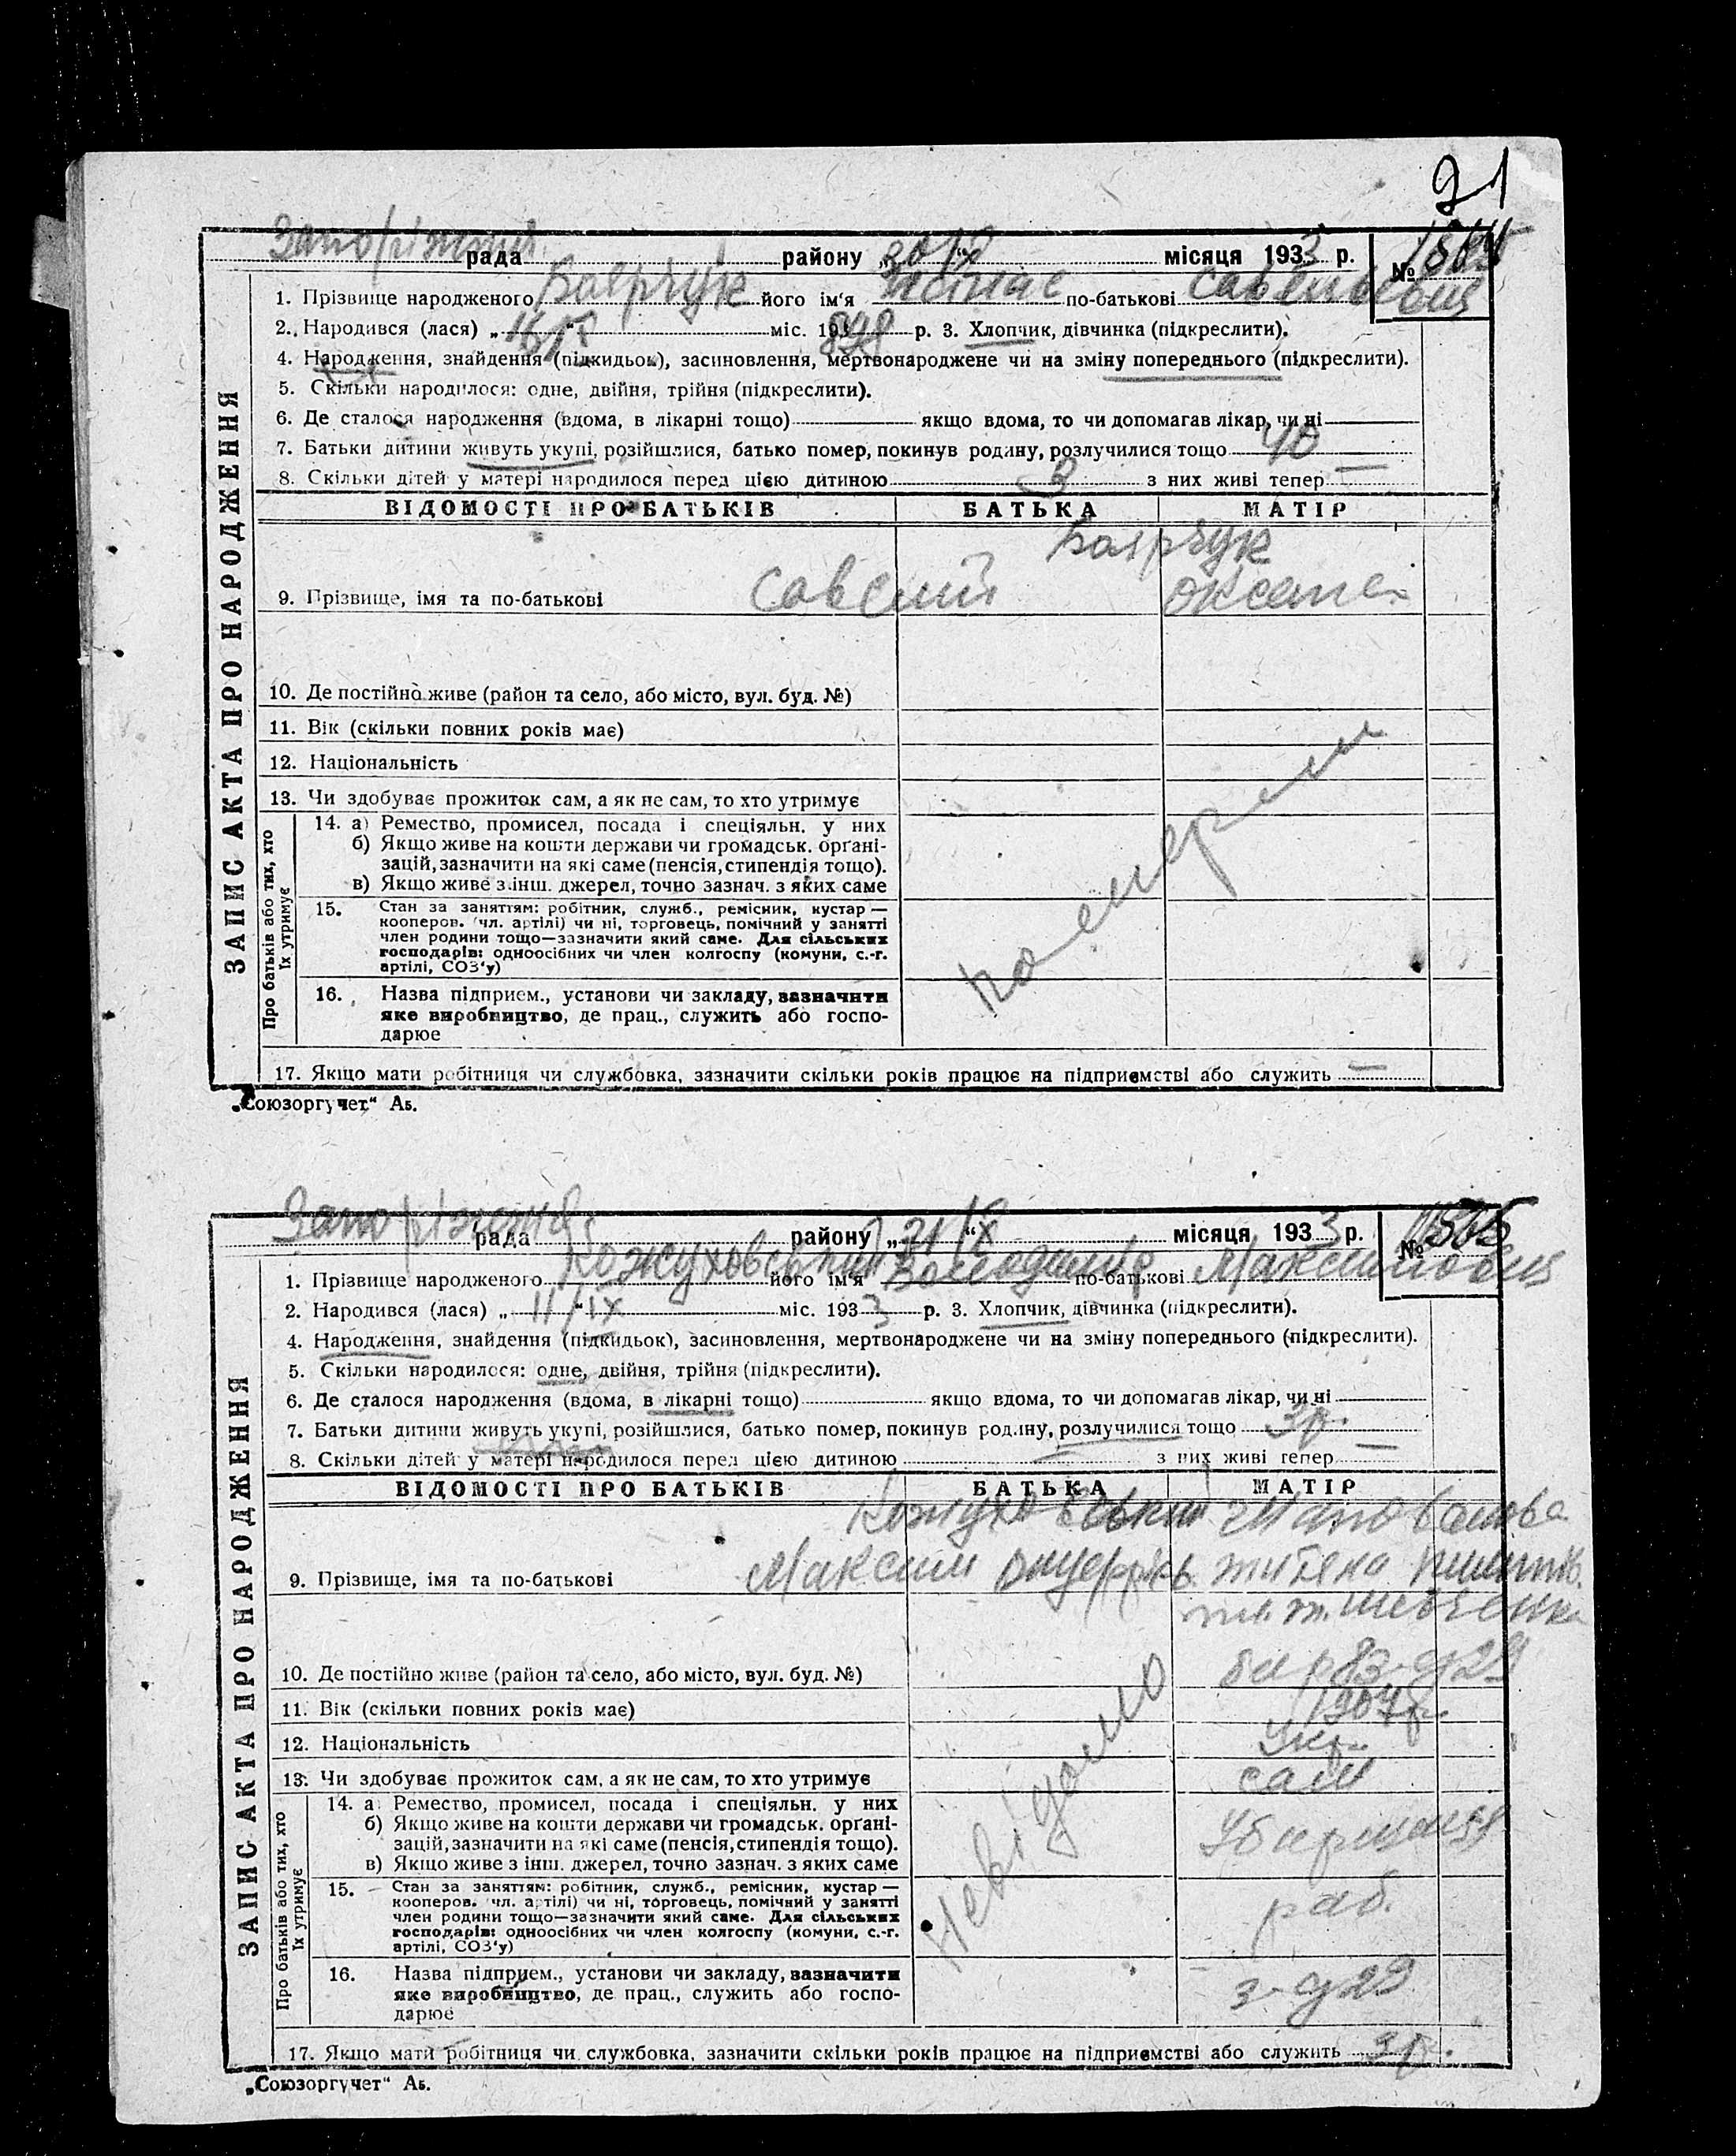 21
Запоріжжя рада району „20/X“ місяця 1933 р. №
1. Прізвище народженого Боярчук його ім'я по-батькові Савельевич
2. Народився (лася) „ “ міс. 193 р. 3. Хлопчик, дівчинка (підкреслити).
4. Народження, знайдення (підкидьок), засиновлення, мертвонароджене чи на зміну попереднього (підкреслити).
5. Скільки народилося: одне, двійня, трійня (підкреслити).
6. Де сталося народження (вдома, в лікарні тощо) якщо вдома, то чи допомагав лікар, чи ні
7. Батьки дитини живуть укупі, розійшлися, батько помер, покинув родину, розлучилися тощо
8. Скільки дітей у матері народилося перед цією дитиною 3 з них живі тепер —
ВІДОМОСТІ ПРО БАТЬКІВ БАТЬКА МАТІР
Боярчук
9. Прізвище, імя та по-батькові Савелий Оксана
10. Де постійно живе (район та село, або місто, вул. буд. №)
11. Вік (скільки повних років має)
12. Національність
13. Чи здобуває прожиток сам, а як не сам, то хто утримує
14. а) Ремество, промисел, посада і спеціяльн. у них
б) Якщо живе на кошти держави чи громадськ. орґані-
зацій, зазначити на які саме (пенсія, стипендія тощо).
в) Якщо живе з інш. джерел, точно зазнач. з яких саме
15. Стан за заняттям: робітник, служб., ремісник, кустар —
кооперов. (чл. артілі) чи ні, торговець, помічний у занятті
член родини тощо—зазначити який саме. Для сільських
господарів: одноосібних чи член колгоспу (комуни, с.-г.
артілі, СОЗ'у)
16. Назва підприєм., установи чи закладу, зазначити
яке виробництво, де прац., служить або госпо-
дарює
померли
17. Якщо мати робітниця чи службовка, зазначити скільки років працює на підприємстві або служить —
ЗАПИС АКТА ПРО НАРОДЖЕННЯ
Про батьків або тих, хто їх утримує
„Союзоргучет“ Аб.
Запоріжжя рада району „21/X“ місяця 1933 р. № 1565
1. Прізвище народженого Кожуховський його ім'я Володимир по-батькові Максимович
2. Народився (лася) „11/IX“ міс. 1933 р. 3. Хлопчик, дівчинка (підкреслити).
4. Народження, знайдення (підкидьок), засиновлення, мертвонароджене чи на зміну попереднього (підкреслити).
5. Скільки народилося: одне, двійня, трійня (підкреслити).
6. Де сталося народження (вдома, в лікарні тощо) якщо вдома, то чи допомагав лікар, чи ні
7. Батьки дитини живуть укупі, розійшлися, батько помер, покинув родину, розлучилися тощо 3р.
8. Скільки дітей у матері народилося перед цією дитиною — з них живі тепер —
ВІДОМОСТІ ПРО БАТЬКІВ БАТЬКА МАТІР
Кожуховський Шаповалова
9. Прізвище, імя та по-батькові Максим
Шевченка
10. Де постійно живе (район та село, або місто, вул. буд. №) бар 83
11. Вік (скільки повних років має) 1907р.
12. Національність Укр.
13. Чи здобуває прожиток сам, а як не сам, то хто утримує сам
14. а) Ремество, промисел, посада і спеціяльн. у них
б) Якщо живе на кошти держави чи громадськ. орґані-
зацій, зазначити на які саме (пенсія, стипендія тощо).
в) Якщо живе з інш. джерел, точно зазнач. з яких саме
Убирщиця
15. Стан за заняттям: робітник, служб., ремісник, кустар —
кооперов. (чл. артілі) чи ні, торговець, помічний у занятті
член родини тощо—зазначити який саме. Для сільських
господарів: одноосібних чи член колгоспу (комуни, с.-г.
артілі, СОЗ'у)
раб.
16. Назва підприєм., установи чи закладу, зазначити
яке виробництво, де прац., служить або госпо-
дарює
з-д 29
Невідомо
17. Якщо мати робітниця чи службовка, зазначити скільки років працює на підприємстві або служить 3р.
ЗАПИС АКТА ПРО НАРОДЖЕННЯ
Про батьків або тих, хто їх утримує
„Союзоргучет“ Аб.